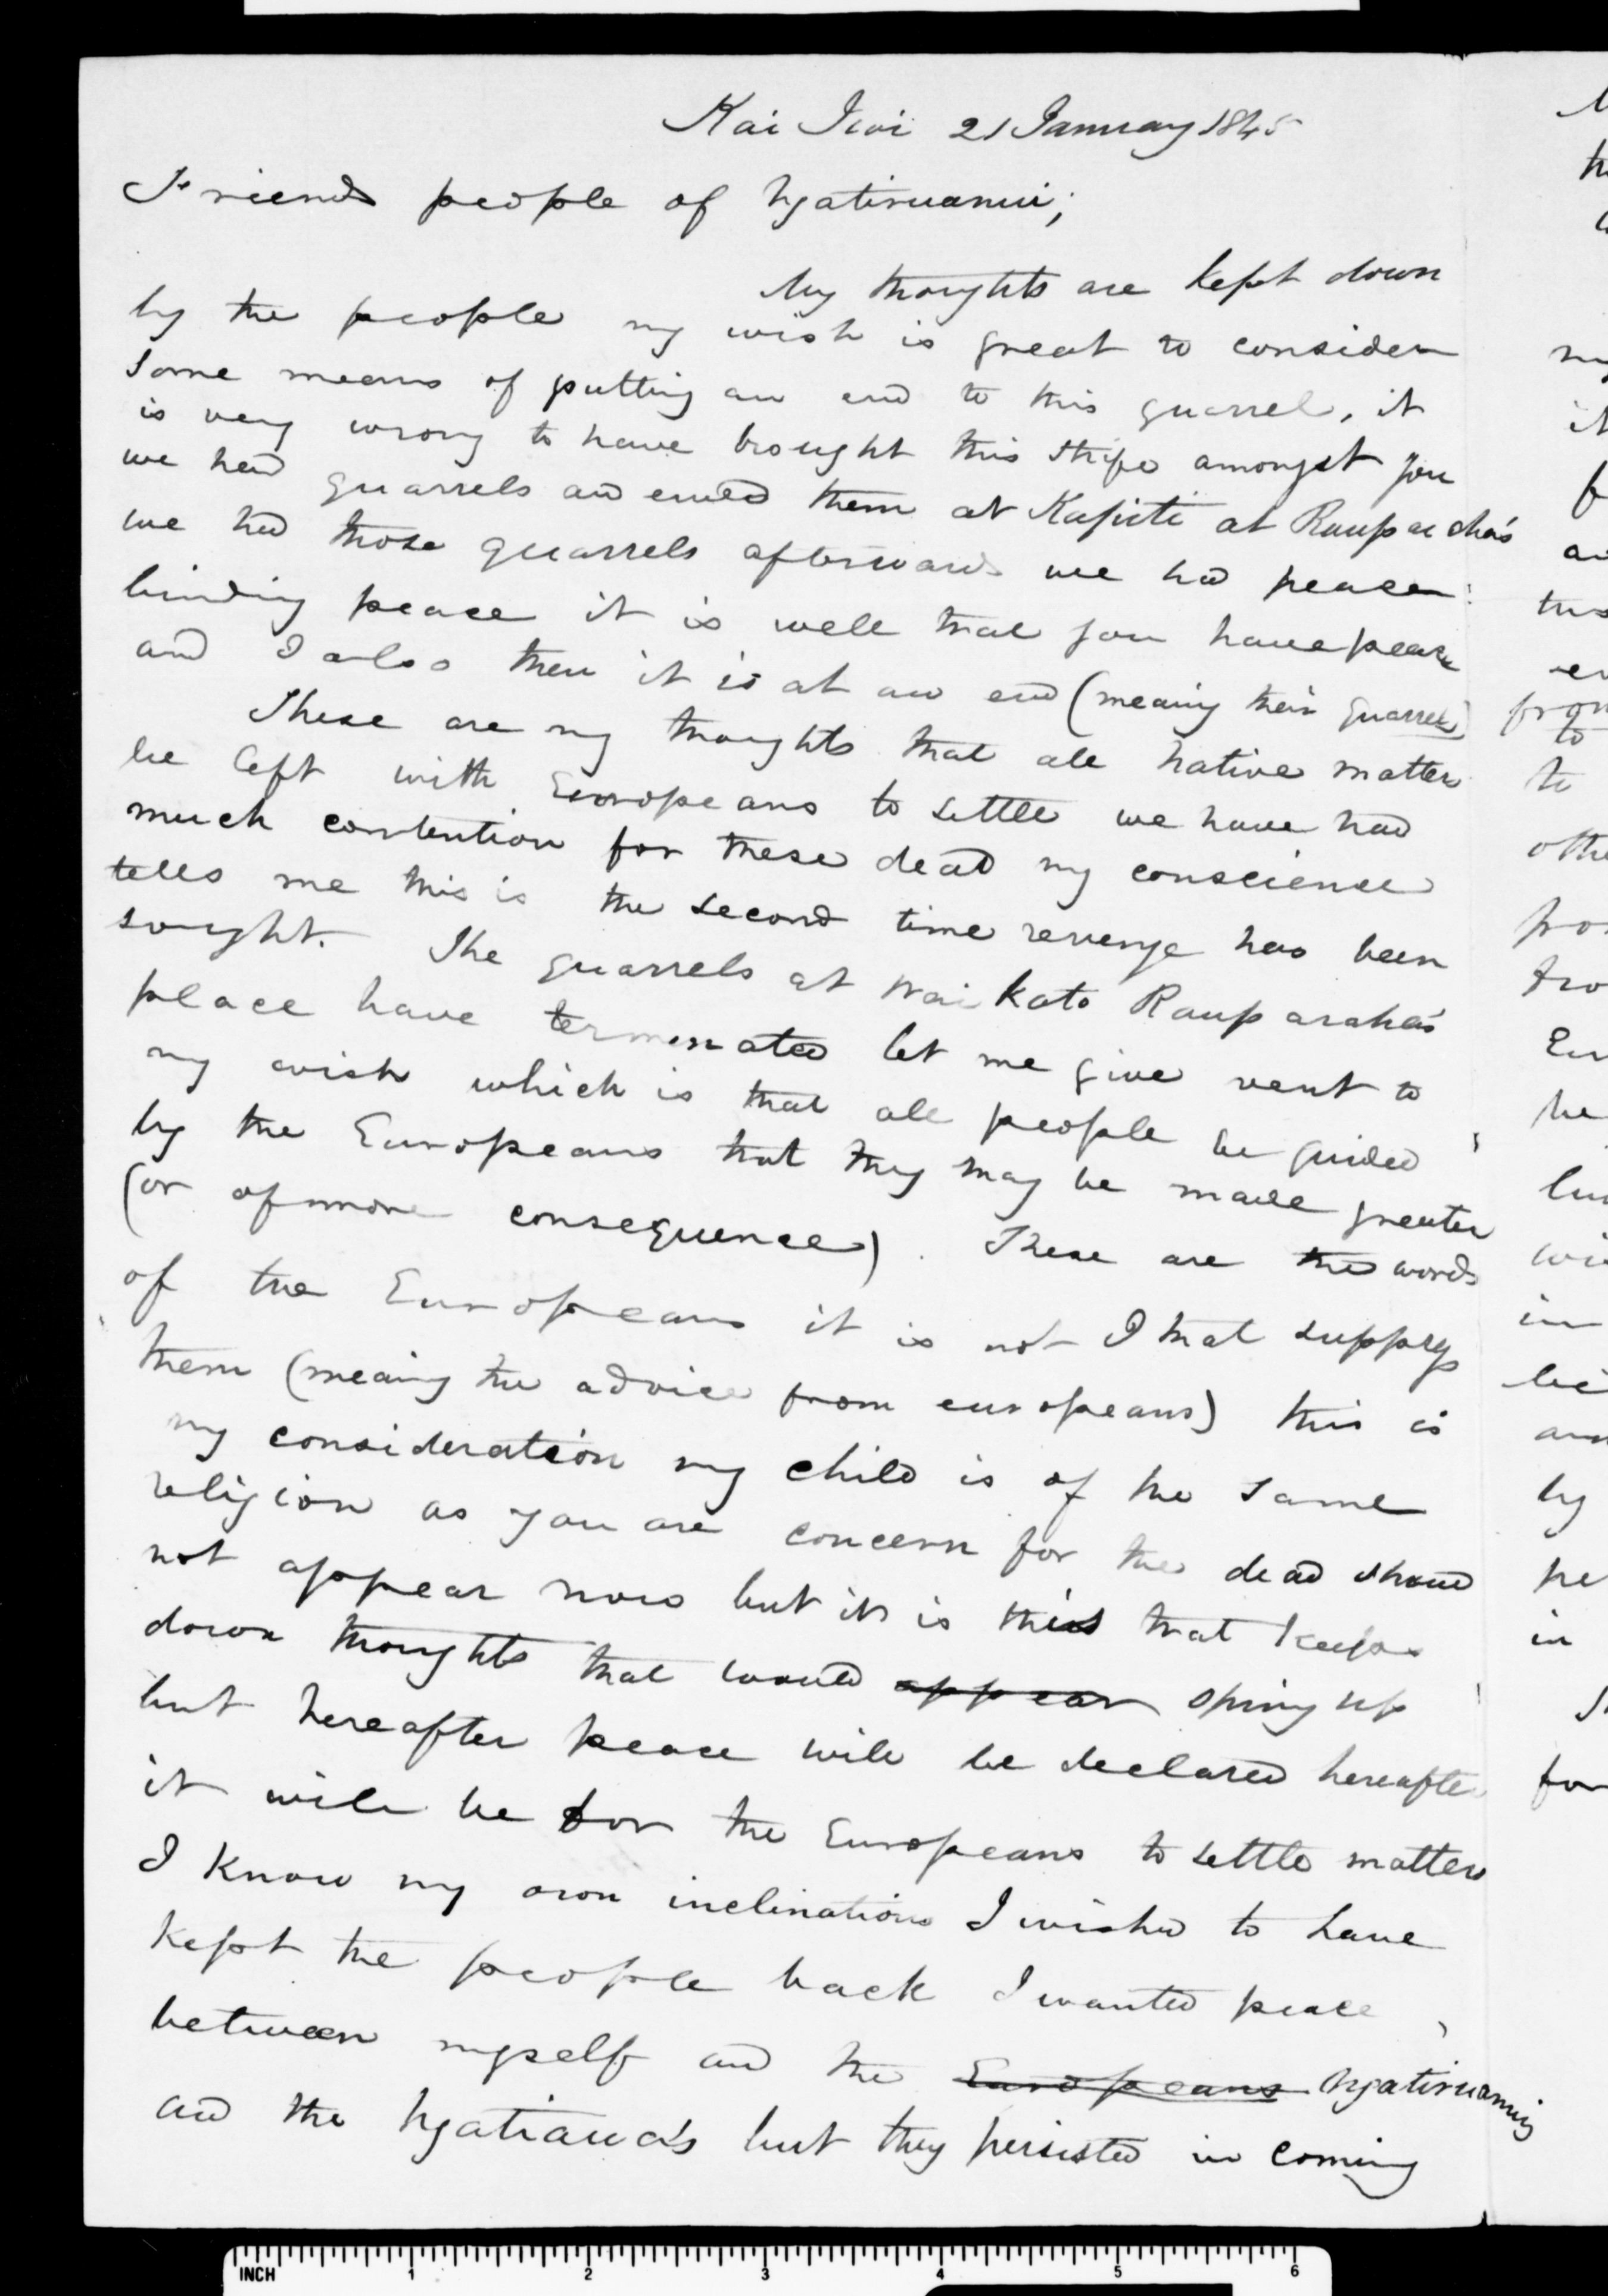 Kai Iwi 21 January 1845
Friends people of Ngatiruanui;
My thoughts are kept down
by the people my wish is great to consider
some means of putting an end to this quarrel, it
is very wrong to have brought this strife amongst you
we had quarrels and ended them at Kapiti at Rauparaha's
we had those quarrels afterwards we had peace:
binding peace it is well that you have peace
and I also then it is at an end (meaning their quarrels)
These are my thoughts that all native matters
be left with Europeans to settle we have had
much contention for these dead my conscience
tells me this is the second time revenge has been
sought. The quarrels at Waikato Rauparaha's
place have terminated let me give vent to
my wish which is that all people be guided
by the Europeans that they may be made greater
(or of more consequence). These are the words
of the Europeans it is not I that suppress
them (meaing the advice from europeans) this is
my consideration my child is of the same
religion as you are concern for the dead should
not appear now but it is this that keeps
down thoughts that would appear spring up
but hereafter peace will be declared hereafter
it will be for the Europeans to settle matters
I know my own inclinations I wished to have
kept the people back I wanted peace
between myself and the Europeans Ngatiruanui
and the Ngatiawa's but they persisted in coming
INCH 1 2 3 4 5 6